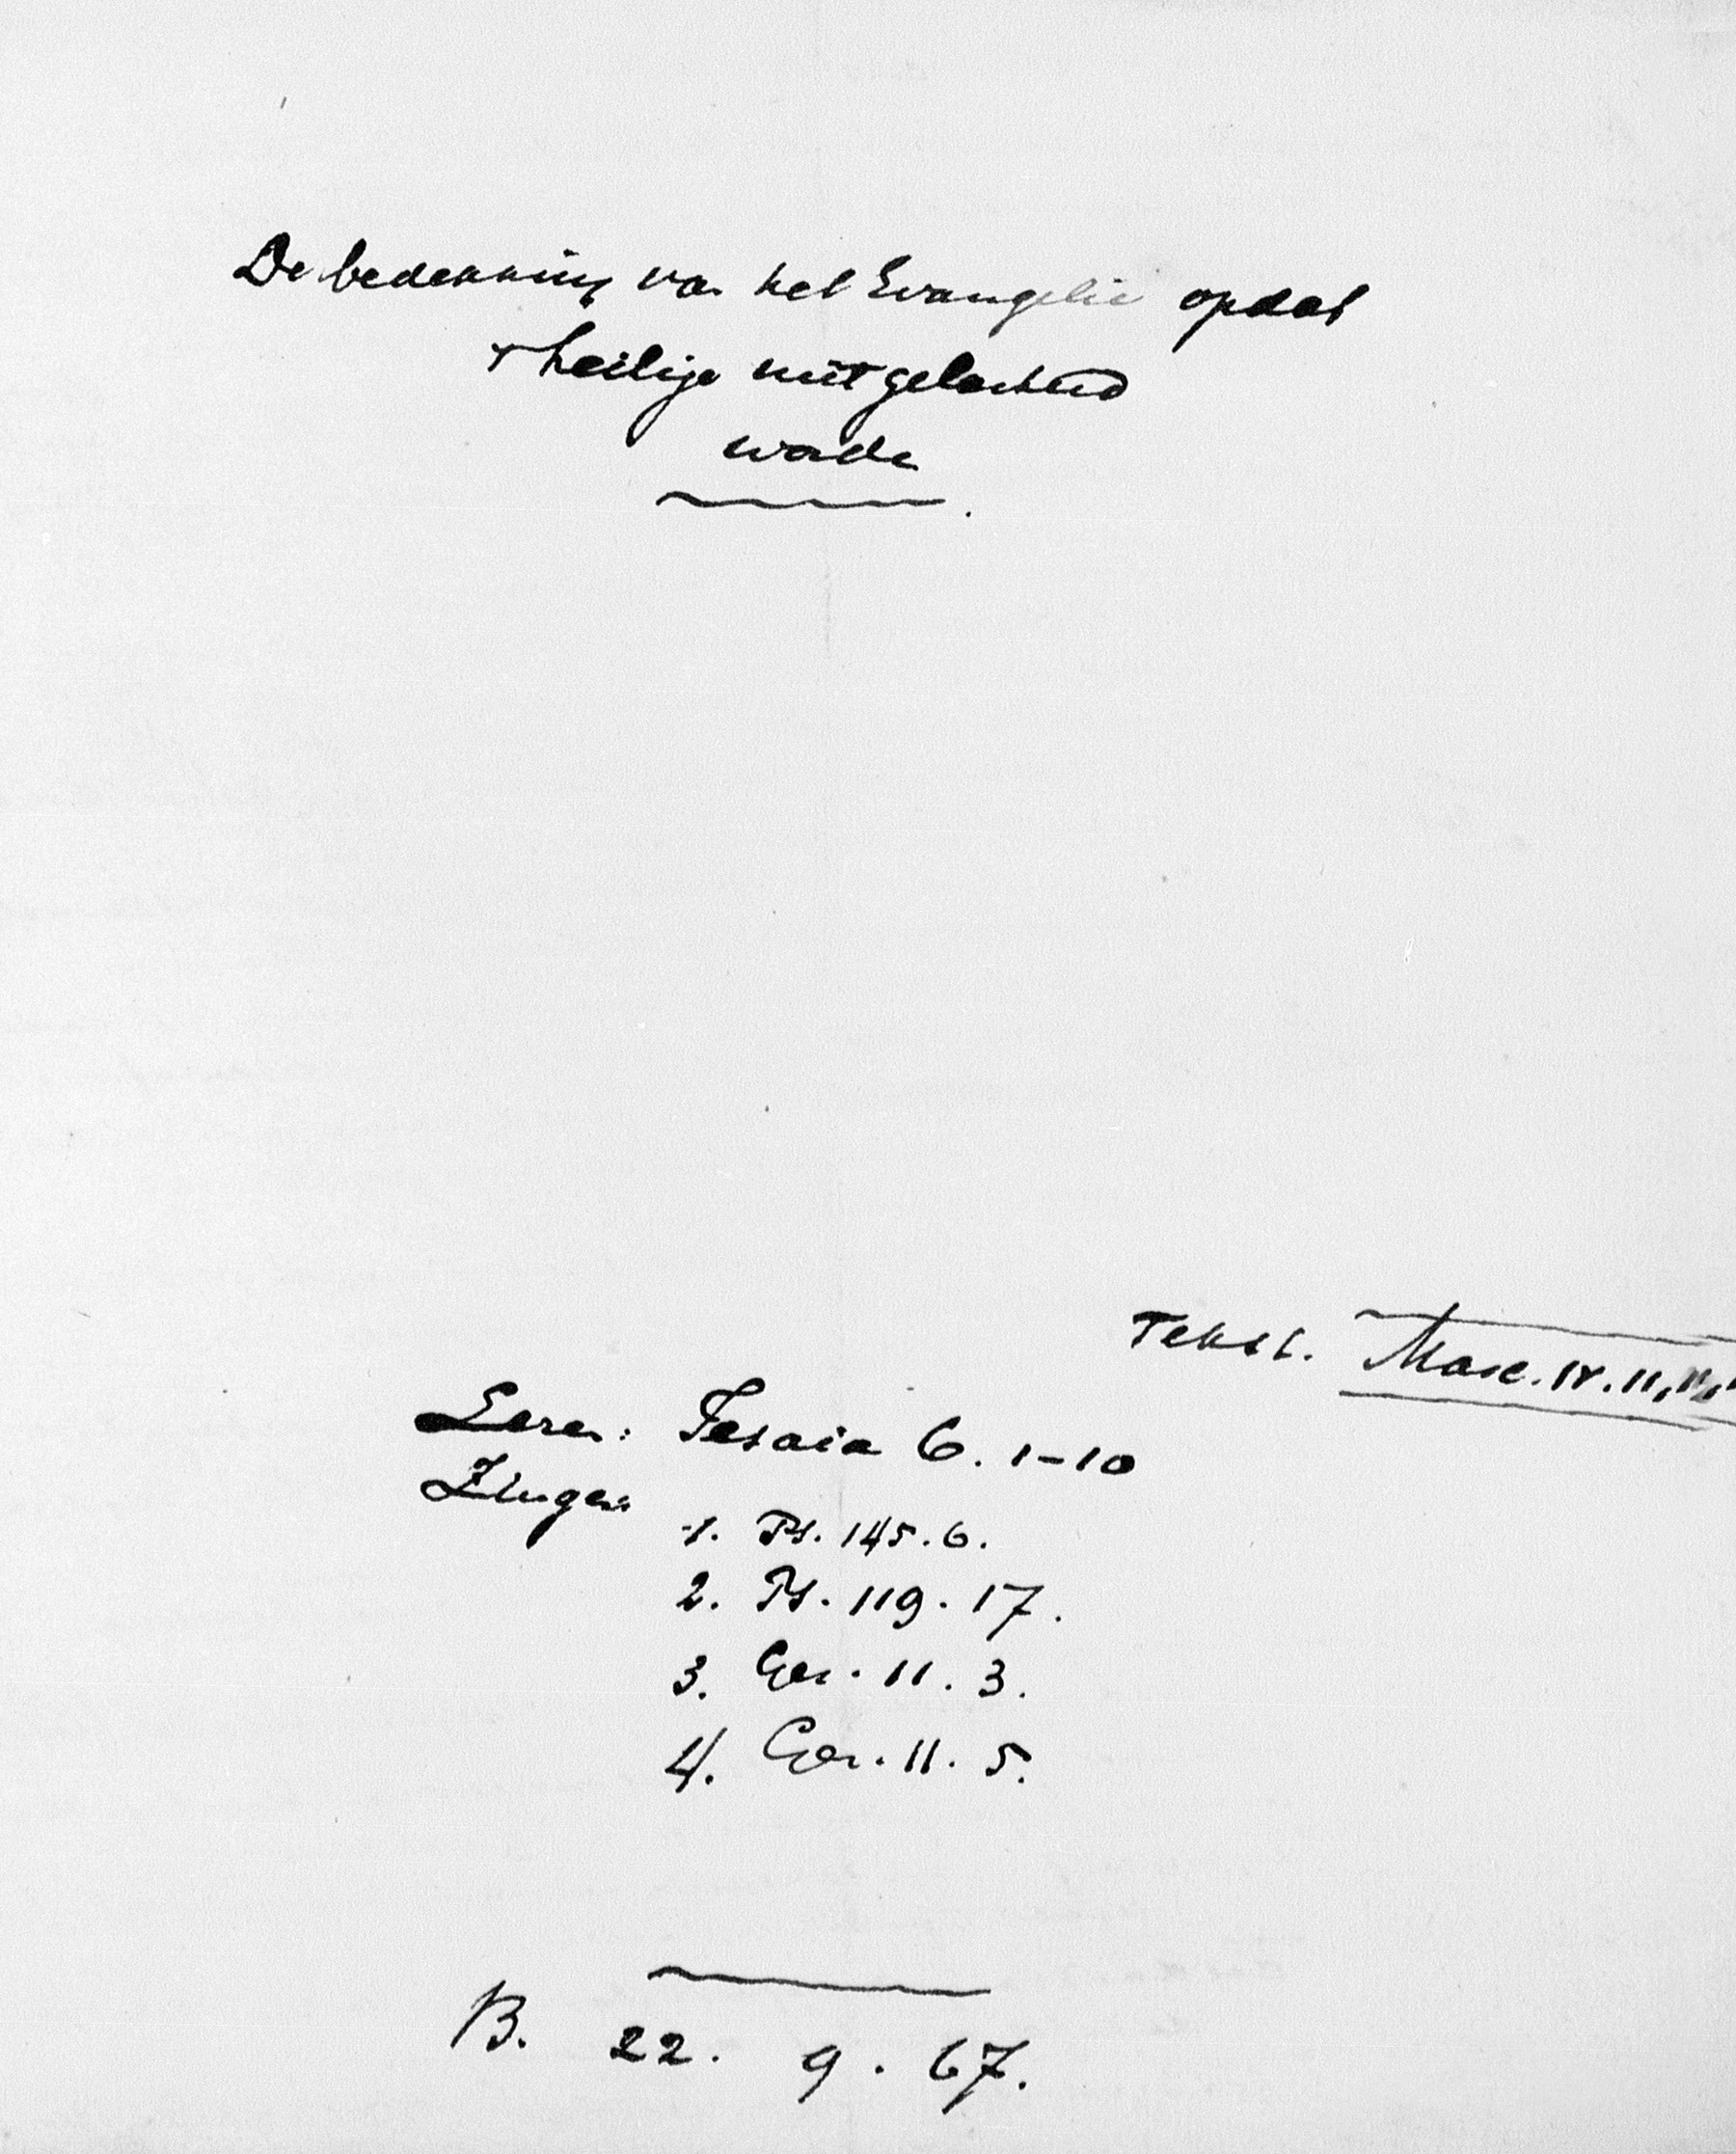 De bedekking van het Evangelie opdat
't heilige niet gelasterd
worde
Tekst. Marc. IV. 11, 12,
Lezen: Jesaia 6. 1-10
Zingen:
1. Ps. 145. 6.
2. Ps. 119. 17.
3. Gez. 11. 3.
4. Gez. 11. 5.
B. 22. 9. 67.